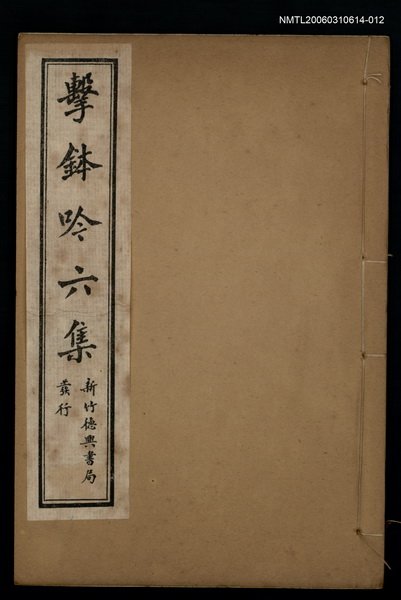 NMTL20060310614-012
擊鉢吟六集
新竹德興書局
發行